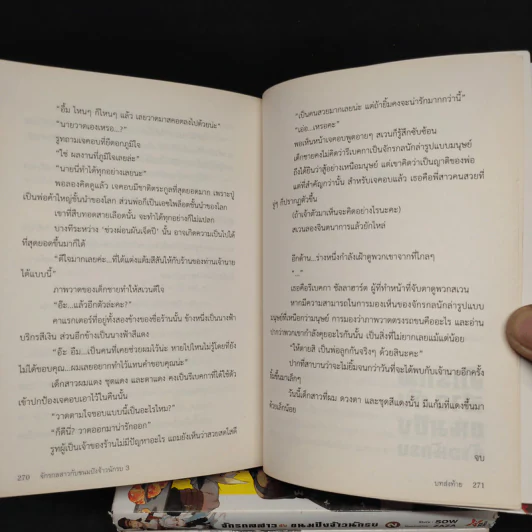 "อื้ม ไหนๆ ก็ไหนๆ แล้ว เลยวาดมาสคอตลงไปด้วยน่ะ"
"นายวาดเองเหรอ...?"
รูทถามเจคอบที่ยืดอกภูมิใจ
"ใช่ ผลงานที่ภูมิใจเลยล่ะ"
"นายนี่ทำได้ทุกอย่างเลยนะ"
พอลองคิดดูแล้ว เจคอบมีชาติตระกูลที่สุดยอดมาก เพราะปู่
เป็นพ่อค้าใหญ่ชั้นนำของโลก ส่วนพ่อก็เป็นเอซไพล็อตชั้นนำของโลก
เขาที่สืบทอดสายเลือดนั้น จะทำได้ทุกอย่างก็ไม่แปลก
บางทีระหว่าง 'ช่วงผ่อนผันเจ็ดปี' นั้น อาจเกิดความเป็นไปได้
ที่สุดยอดขึ้นมาก็ได้
"ดีใจมากเลยค่ะ...ที่ได้แต่งแต้มสีสันให้กับร้านของท่านเจ้านาย
ได้แบบนี้"
ภาพวาดของเด็กชายทำให้สเวนดีใจ
"อ๊ะ...แล้วอีกตัวล่ะคะ?"
คาแรกเตอร์ที่อยู่ทั้งสองข้างของชื่อร้านนั้น ข้างหนึ่งเป็นนางฟ้า
บริกรสีเงิน ส่วนอีกข้างเป็นนางฟ้าสีแดง
"อ๊ะ อืม...เป็นคนที่เคยช่วยผมไว้น่ะ หายไปไหนไม่รู้โดยที่ยัง
ไม่ได้ขอบคุณ...ผมเลยอยากทำไว้แทนคำขอบคุณน่ะ"
เด็กสาวผมแดง ชุดแดง และตาแดง คงเป็นรีเบคกาที่ได้ใช้ตัว
เข้าปกป้องเจคอบเอาไว้ในคืนนั้น
"วาดตามใจชอบแบบนี้จะเป็นอะไรไหม?"
"ก็ดีนี่? วาดออกมาน่ารักออก"
รูทผู้เป็นเจ้าของร้านไม่มีปัญหาอะไร แถมยังเห็นว่าสวยสดใสดี
270 จักรกลสาวกับขนมปังจ้าวนักรบ 3
"เป็นคนสวยมากเลยน่ะ แต่ถ้ายิ้มคงจะน่ารักมากกว่านี้"
"เอ๋อ...เหรอคะ"
พอเห็นหน้าเจคอบพูดอายๆ สเวนก็รู้สึกซับซ้อน
เด็กชายคงไม่คิดว่ารีเบคกาเป็นจักรกลนักล่ารูปแบบมนุษย์
ถึงได้ยินว่าสู้อย่างเหนือมนุษย์ แต่เขาคิดว่าเป็นญาติของพ่อ
แต่ที่สำคัญกว่านั้น สำหรับเจคอบแล้ว เธอคือพี่สาวคนสวยที่
อยู่ๆ ก็ปรากฏตัวขึ้น
(ถ้าเจ้าตัวมาเห็นจะคิดอย่างไรนะคะ)
สเวนลองจินตนาการแล้วยักไหล่
อีกด้าน...ร่างหนึ่งกำลังเฝ้าดูพวกเขาจากที่ไกลๆ
"..."
เธอคือรีเบคกา ชัลลาฮาร์ด ผู้ที่ทำหน้าที่จับตาดูพวกสเวน
หากมีความสามารถในการมองเห็นของจักรกลนักล่ารูปแบบ
มนุษย์ที่เหนือกว่ามนุษย์ การมองว่าภาพวาดตรงรถขนคืออะไร และอ่าน
ปากว่าพวกเขากำลังคุยอะไรกันนั้น เป็นสิ่งที่ไม่ยากเลยแม้แต่น้อย
"ให้ตายสิ เป็นพ่อลูกกันจริงๆ ด้วยสินะคะ"
ปากที่สาบานว่าจะไม่ยิ้มจนกว่าวันที่จะได้พบกับเจ้านายอีกครั้ง
ยิ้มขึ้นมาเล็กๆ
วันนี้เด็กสาวที่ผม ดวงตา และชุดสีแดงนั้น มีแก้มที่แดงขึ้นมา
ด้วยเล็กน้อย
จบ
บทส่งท้าย 271
จักรกลสาวกับขนมปังจ้าวนักรบ
SOW